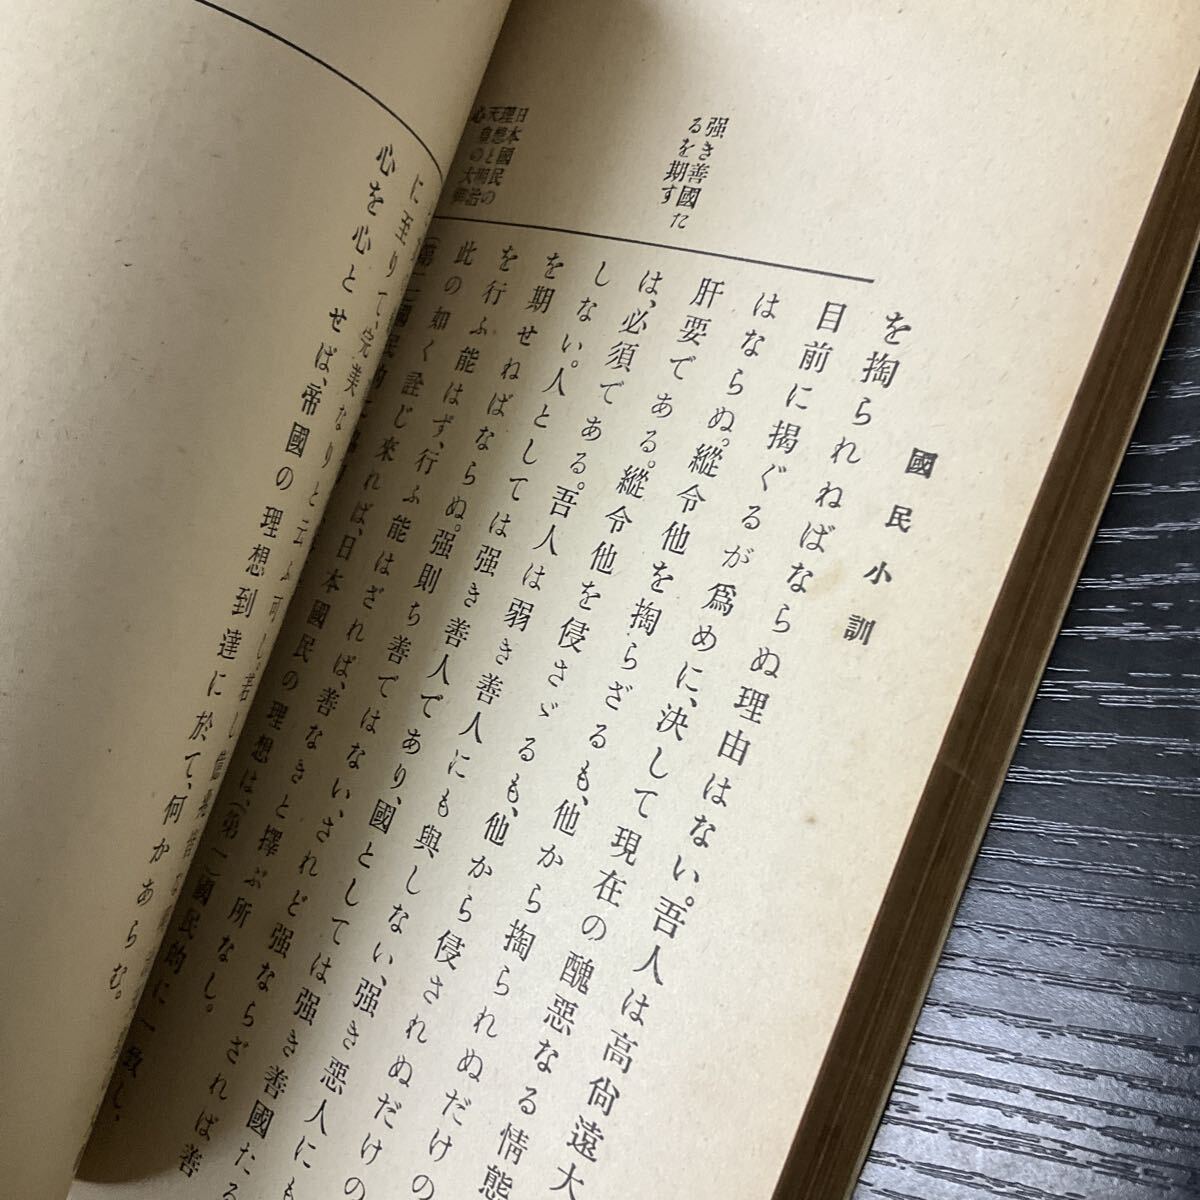 國民小訓
强き善國た
るを期す
日本國民の
理想と明治
天皇の大御
心
を掏られねばならぬ理由はない。吾人は高尙遠大
目前に揭ぐるが爲めに、決して現在の醜惡なる情態
はならぬ。縱令他を掏らざるも、他から掏られぬだけの
肝要である。縱令他を侵さゞるも、他から侵されぬだけの
は、必須である。吾人は弱き善人にも與しない、强き惡人にも
しない。人としては强き善人であり、國としては强き善國たる
を期せねばならぬ。强則ち善ではない、されど强ならざれば善
を行ふ能はず、行ふ能はざれば、善なきと擇ぶ所なし。
此の如く詮じ來れば、日本國民の理想は、(第一)國民的に一致し、
(第二)國民的に
に至りて、完美なりと云ふ可し。若し
心を心とせば、帝國の理想到達に於て、何かあらむ。